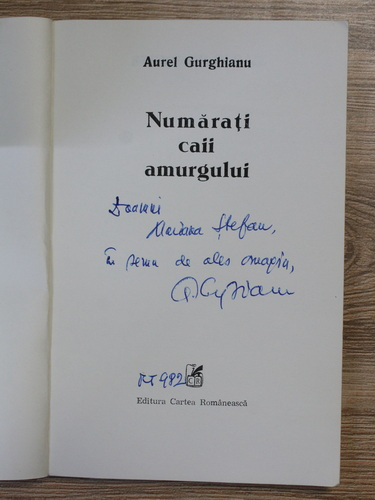 Aurel Gurghianu
Numărați
caii
amurgului
Doamnei
Mariana Ștefan,
în semn de ales omagiu,
CR
Editura Cartea Românească